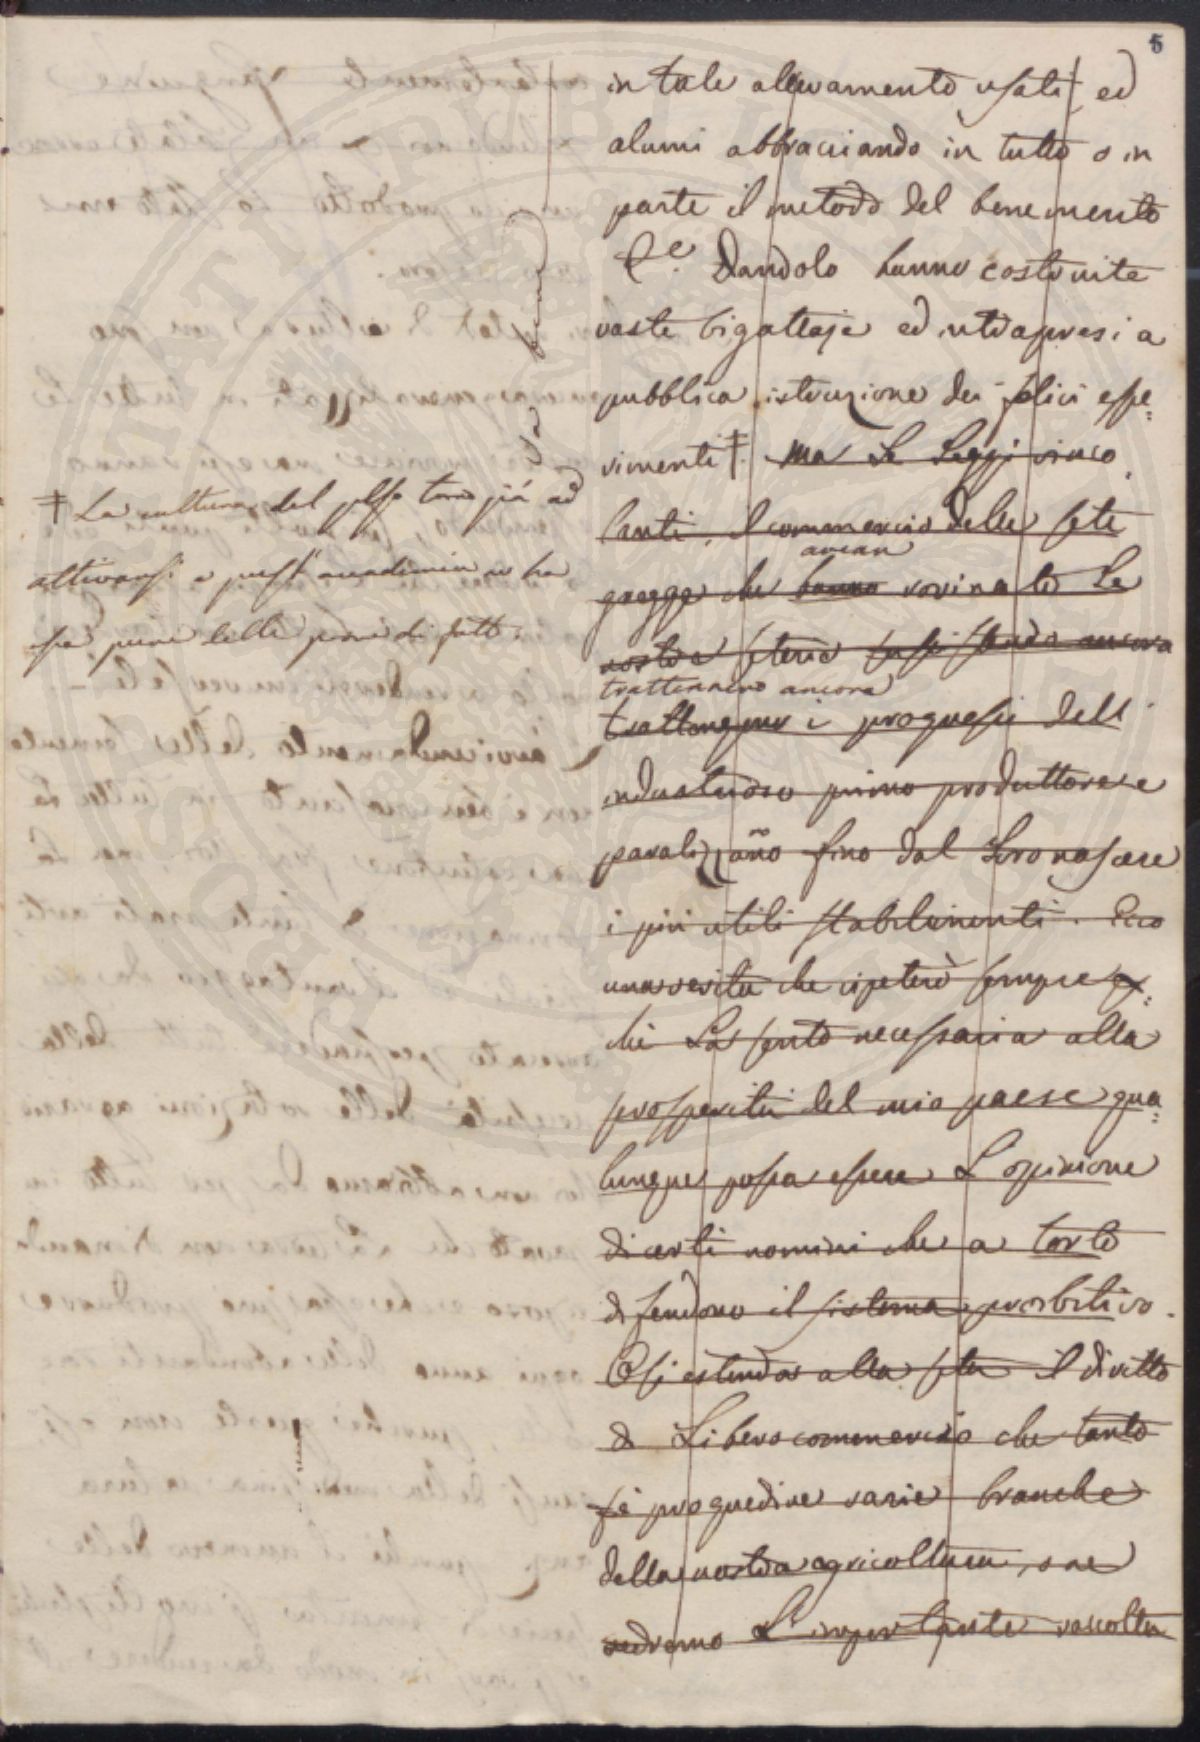 5
in tale allevamento usati ed
alumi abbracciando in tutto o in
parte il metodo del benemerito
Dandolo hanno costruite
vaste bigattaje ed intrapresi a
pubblica istruzione dei felici espe=
rimenti ‡. Ma Le Leggi vinco
lanti il commercio delle sete
avean
gregge che hanno rovinato Le
nostre seterie ancora
tratterranno ancora
trattengono i progressi dell'
industrioso primo produttore e
paralizzano fino dal Loro nascere
i più utili stabilimenti. Ecco
una verità che ripeterò sempre
chè La sento necessaria alla
prosperità del mio paese qua=
lunque possa essere L'opinione
di certi uomini che a torto
difendono il sistema proibitivo.
O si estenda alla seta il diritto
di Libero commercio che tanto
fè progredire varie branche
della nostra agricoltura, o ne
vedremo L'importante raccolta
‡ La cultura del
attivarsi a quest' accademia
pure delle prove di fatto.